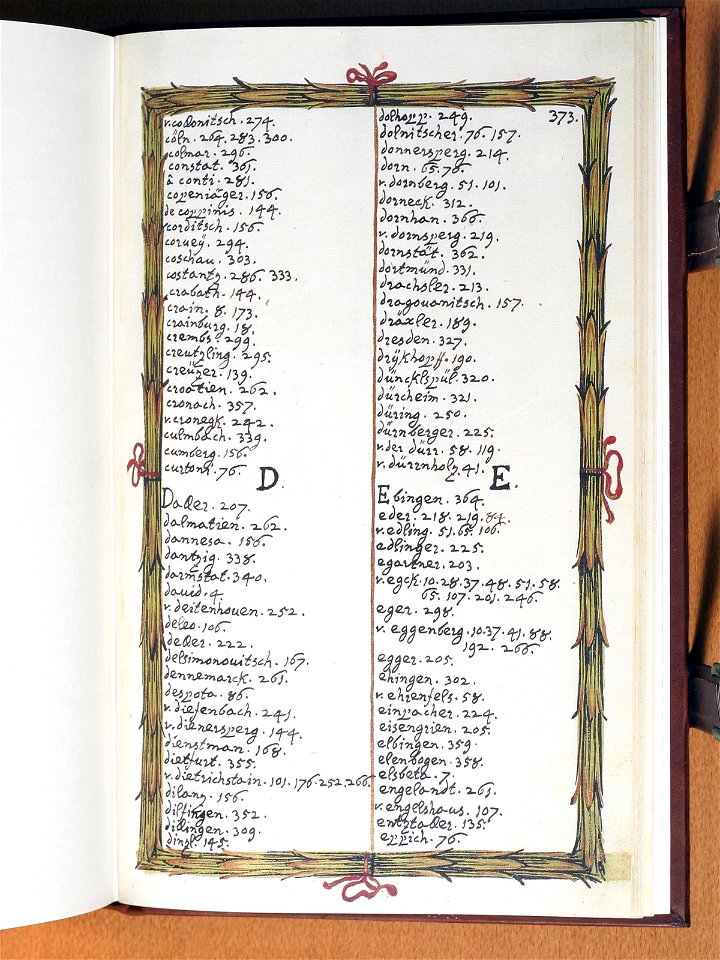 v. collonitsch . 274.
cöln . 264 . 283 . 300.
colmar . 296.
constat . 361.
â conti . 281.
copeniäger . 156.
de coppinis . 144.
corditsch . 156.
corveÿ . 294.
coschau . 303.
costantz . 286 . 333.
crabath . 144.
crain . 8 . 173.
crainburg . 18.
crembs . 299.
creutzling . 295.
creützer . 139.
croatien . 262.
cronach . 357.
v. cronegk . 242.
culmbach . 339.
cumberg . 156.
curtoni . 76.
D.
Daller . 207.
dalmatien . 262.
dannesa . 156.
dantzig . 338.
darmstat . 340.
dauid . 4.
v. deitenhouen . 252.
deleo . 106.
deller . 222.
delsimonouitsch . 167.
dennemarck . 261.
despota . 86.
v. diefenbach . 241.
v. dienersperg . 144.
dienstman . 168.
dietfurt . 355.
v. dietrichstain . 101 . 176 . 252 . 266.
dilanz . 156.
dilfingen . 352.
dillingen . 309.
dingl . 145.
373.
dolhopp . 249.
dolnitscher . 76 . 157.
donnersperg . 214.
dorn . 65 . 76.
v. dornberg . 51 . 101.
dorneck . 312.
dornhan . 366.
v. dornsperg . 219.
dornstät . 362.
dortmünd . 331.
drachsler . 213.
dragouanitsch . 157.
dräxler . 189.
dresden . 327.
drÿkhopff . 190.
düncklspül . 320.
dürcheim . 321.
düring . 250.
dürnberger . 225.
v. der dürr . 58 . 119.
v. dürrnholz . 41.
E.
Ebingen . 364.
eder . 218 . 219 . 84.
v. edling . 51 . 65 . 106.
edlinger . 225.
egartner . 203.
v. egck . 10 . 28 . 37 . 48 . 51 . 58.
65 . 107 . 201 . 246.
eger . 298.
v. eggenberg . 10 . 37 . 41 . 88.
192 . 266.
egger . 205.
ehingen . 302.
v. ehrenfels . 58.
einpacher . 224.
eisengrien . 205.
elbingen . 359.
elenbogen . 358.
elsbeta . 7.
engelandt . 261.
v. engelshaus . 107.
entztaller . 135.
eppich . 76.